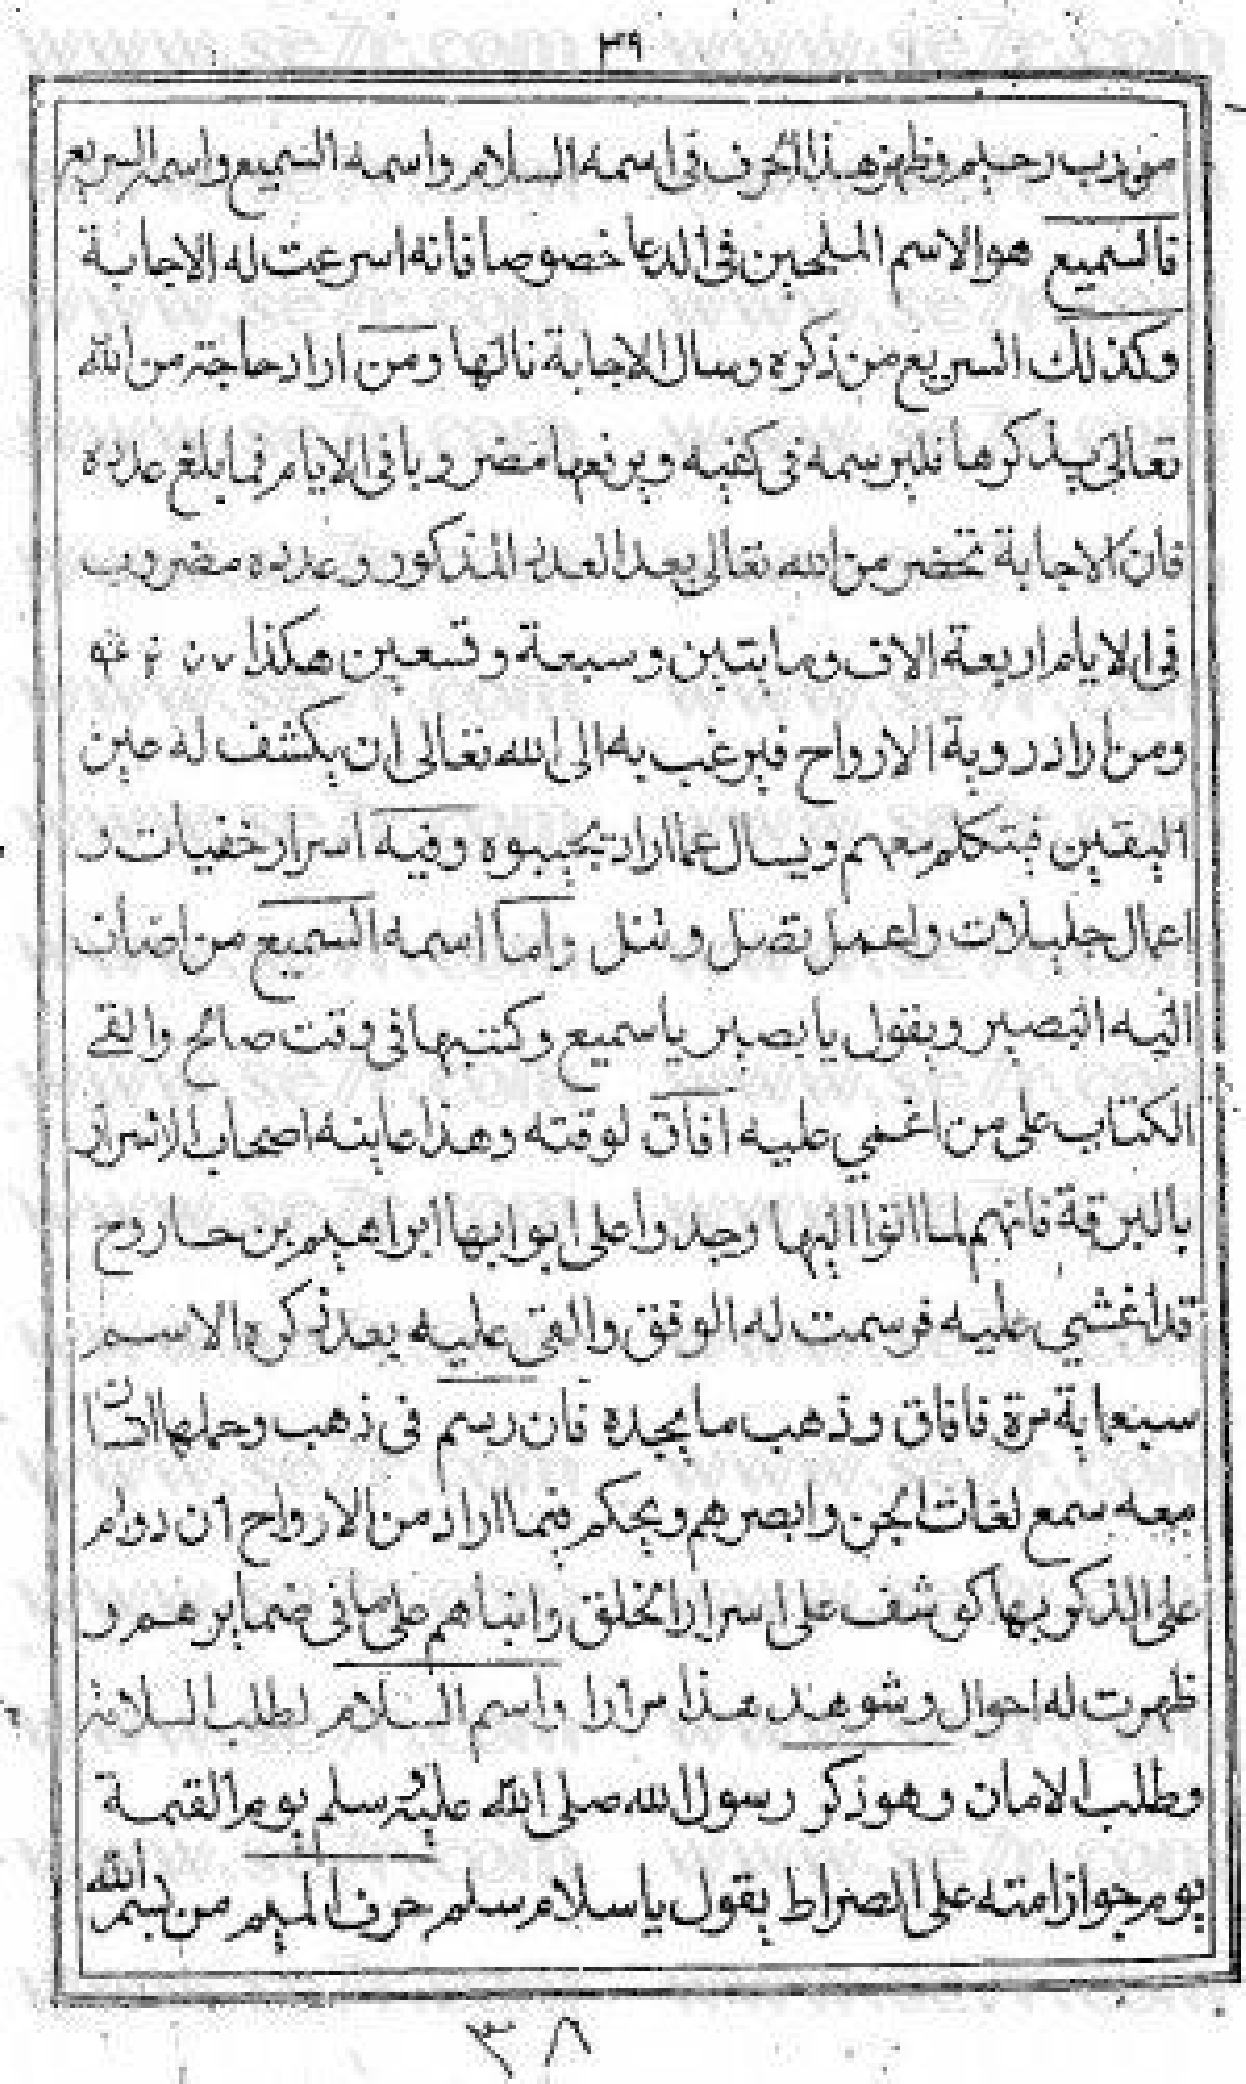 ٣٩
من رب رحيم وظهر هذا الحرف في اسمه السلام واسمه السميع واسمه السريع
فالسميع هو الاسم الملحين في الدعا خصوصا فانه اسرعت له الاجابة
وكذلك السريع من ذكره وسال الاجابة نالها ومن اراد حاجة من الله
تعالى يذكرها فليرسمه في كفيه ويرفعها مضروبا في الايام فما بلغ عدده
فان الاجابة تحضر من الله تعالى بعد العدد المذكور وعدده مضروب
في الايام اربعة الاف ومايتين وسبعة وتسعين هكذا
ومن اراد روية الارواح فيرغب به الى الله تعالى ان يكشف له عين
اليقين فيتكلم معهم ويسال عما اراد يجيبوه وفيه اسرار خفيات و
اعمال جليلات واعمل تصل وتنل واما اسمه السميع من اضاف
اليه البصير ويقول يا بصير يا سميع وكتبها في وقت صالح والقي
الكتاب على من اغمي عليه افاق لوقته وهذا عاينه اصحاب الاسرار
بالبرقة فانهم لما اتوا اليها وجدوا على ابوابها ابراهيم بن حاروح
قد اغشي عليه فرسمت له الوفق والقي عليه بعد ذكره الاسم
سبعماية مرة فافاق وذهب ما يجده فان رسم في ذهب وحملها انسان
معه سمع لغات الجن وابصرهم ويحكم فيما اراد من الارواح ان دوام
على الذكر بها كوشف على اسرار الخلق وانباهم على ما في ضمايرهم و
ظهرت له احوال وشوهد هذا مرارا واسم السلام لطلب السلامة
وطلب الامان وهو ذكر رسول الله صلى الله عليه وسلم يوم القيمة
يوم جواز امته على الصراط يقول يا سلام سلم حرف الميم من بسم الله
٣٨